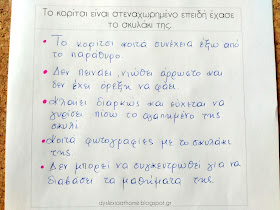 Το κορίτσι είναι στεναχωρημένο επειδή έχασε
το σκυλάκι της.
• Το κορίτσι κοιτά συνέχεια έξω από
το παράθυρο.
• Δεν πεινάει, νιώθει άρρωστο και
δεν έχει όρεξη να φάει.
• Κλαίει διαρκώς και εύχεται να
γυρίσει πίσω το αγαπημένο της
σκυλί.
• Κοιτά φωτογραφίες με το σκυλάκι
της.
• Δεν μπορεί να συγκεντρωθεί για να
διαβάσει τα μαθήματά της.
dyslexiaathome.blogspot.gr